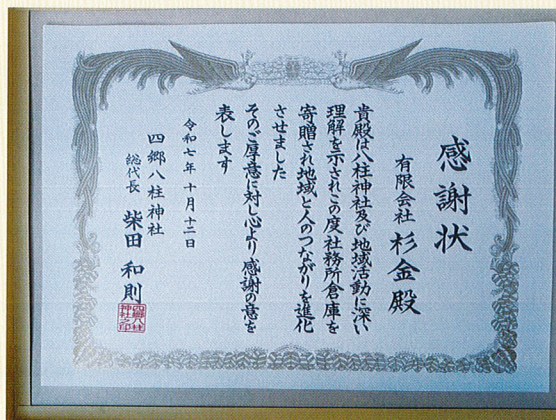 感謝状
有限会社 杉金殿
貴殿は八柱神社及び地域活動に深い
理解を示されこの度社務所倉庫を
寄贈され地域と人のつながりを進化
させました
そのご厚意に対し心より感謝の意を
表します
令和七年十月十二日
四郷八柱神社
総代長 柴田和則
四郷八柱
神社之印